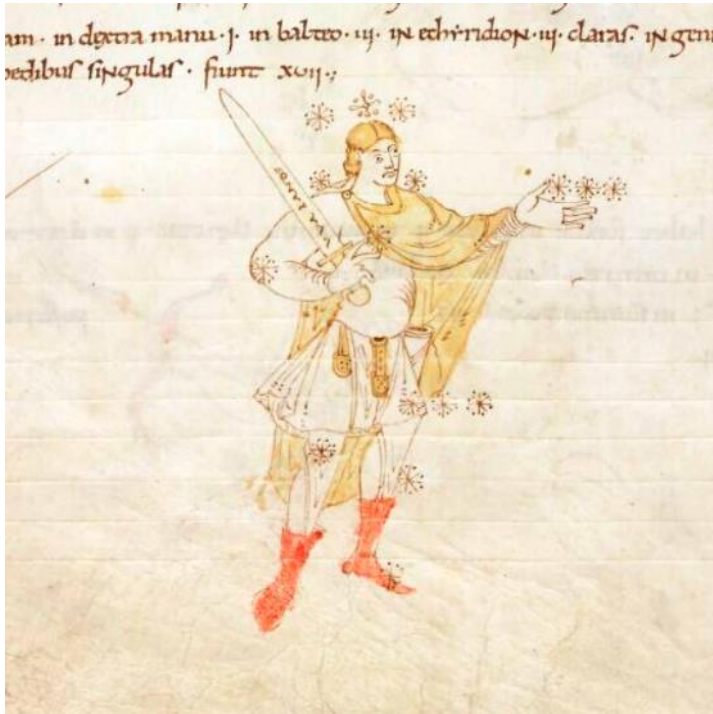 am · in dextra manu · i · in balteo · iii · IN echyridion · iii · claras · IN gen
pedibus singulas · fiunt xvii ·;